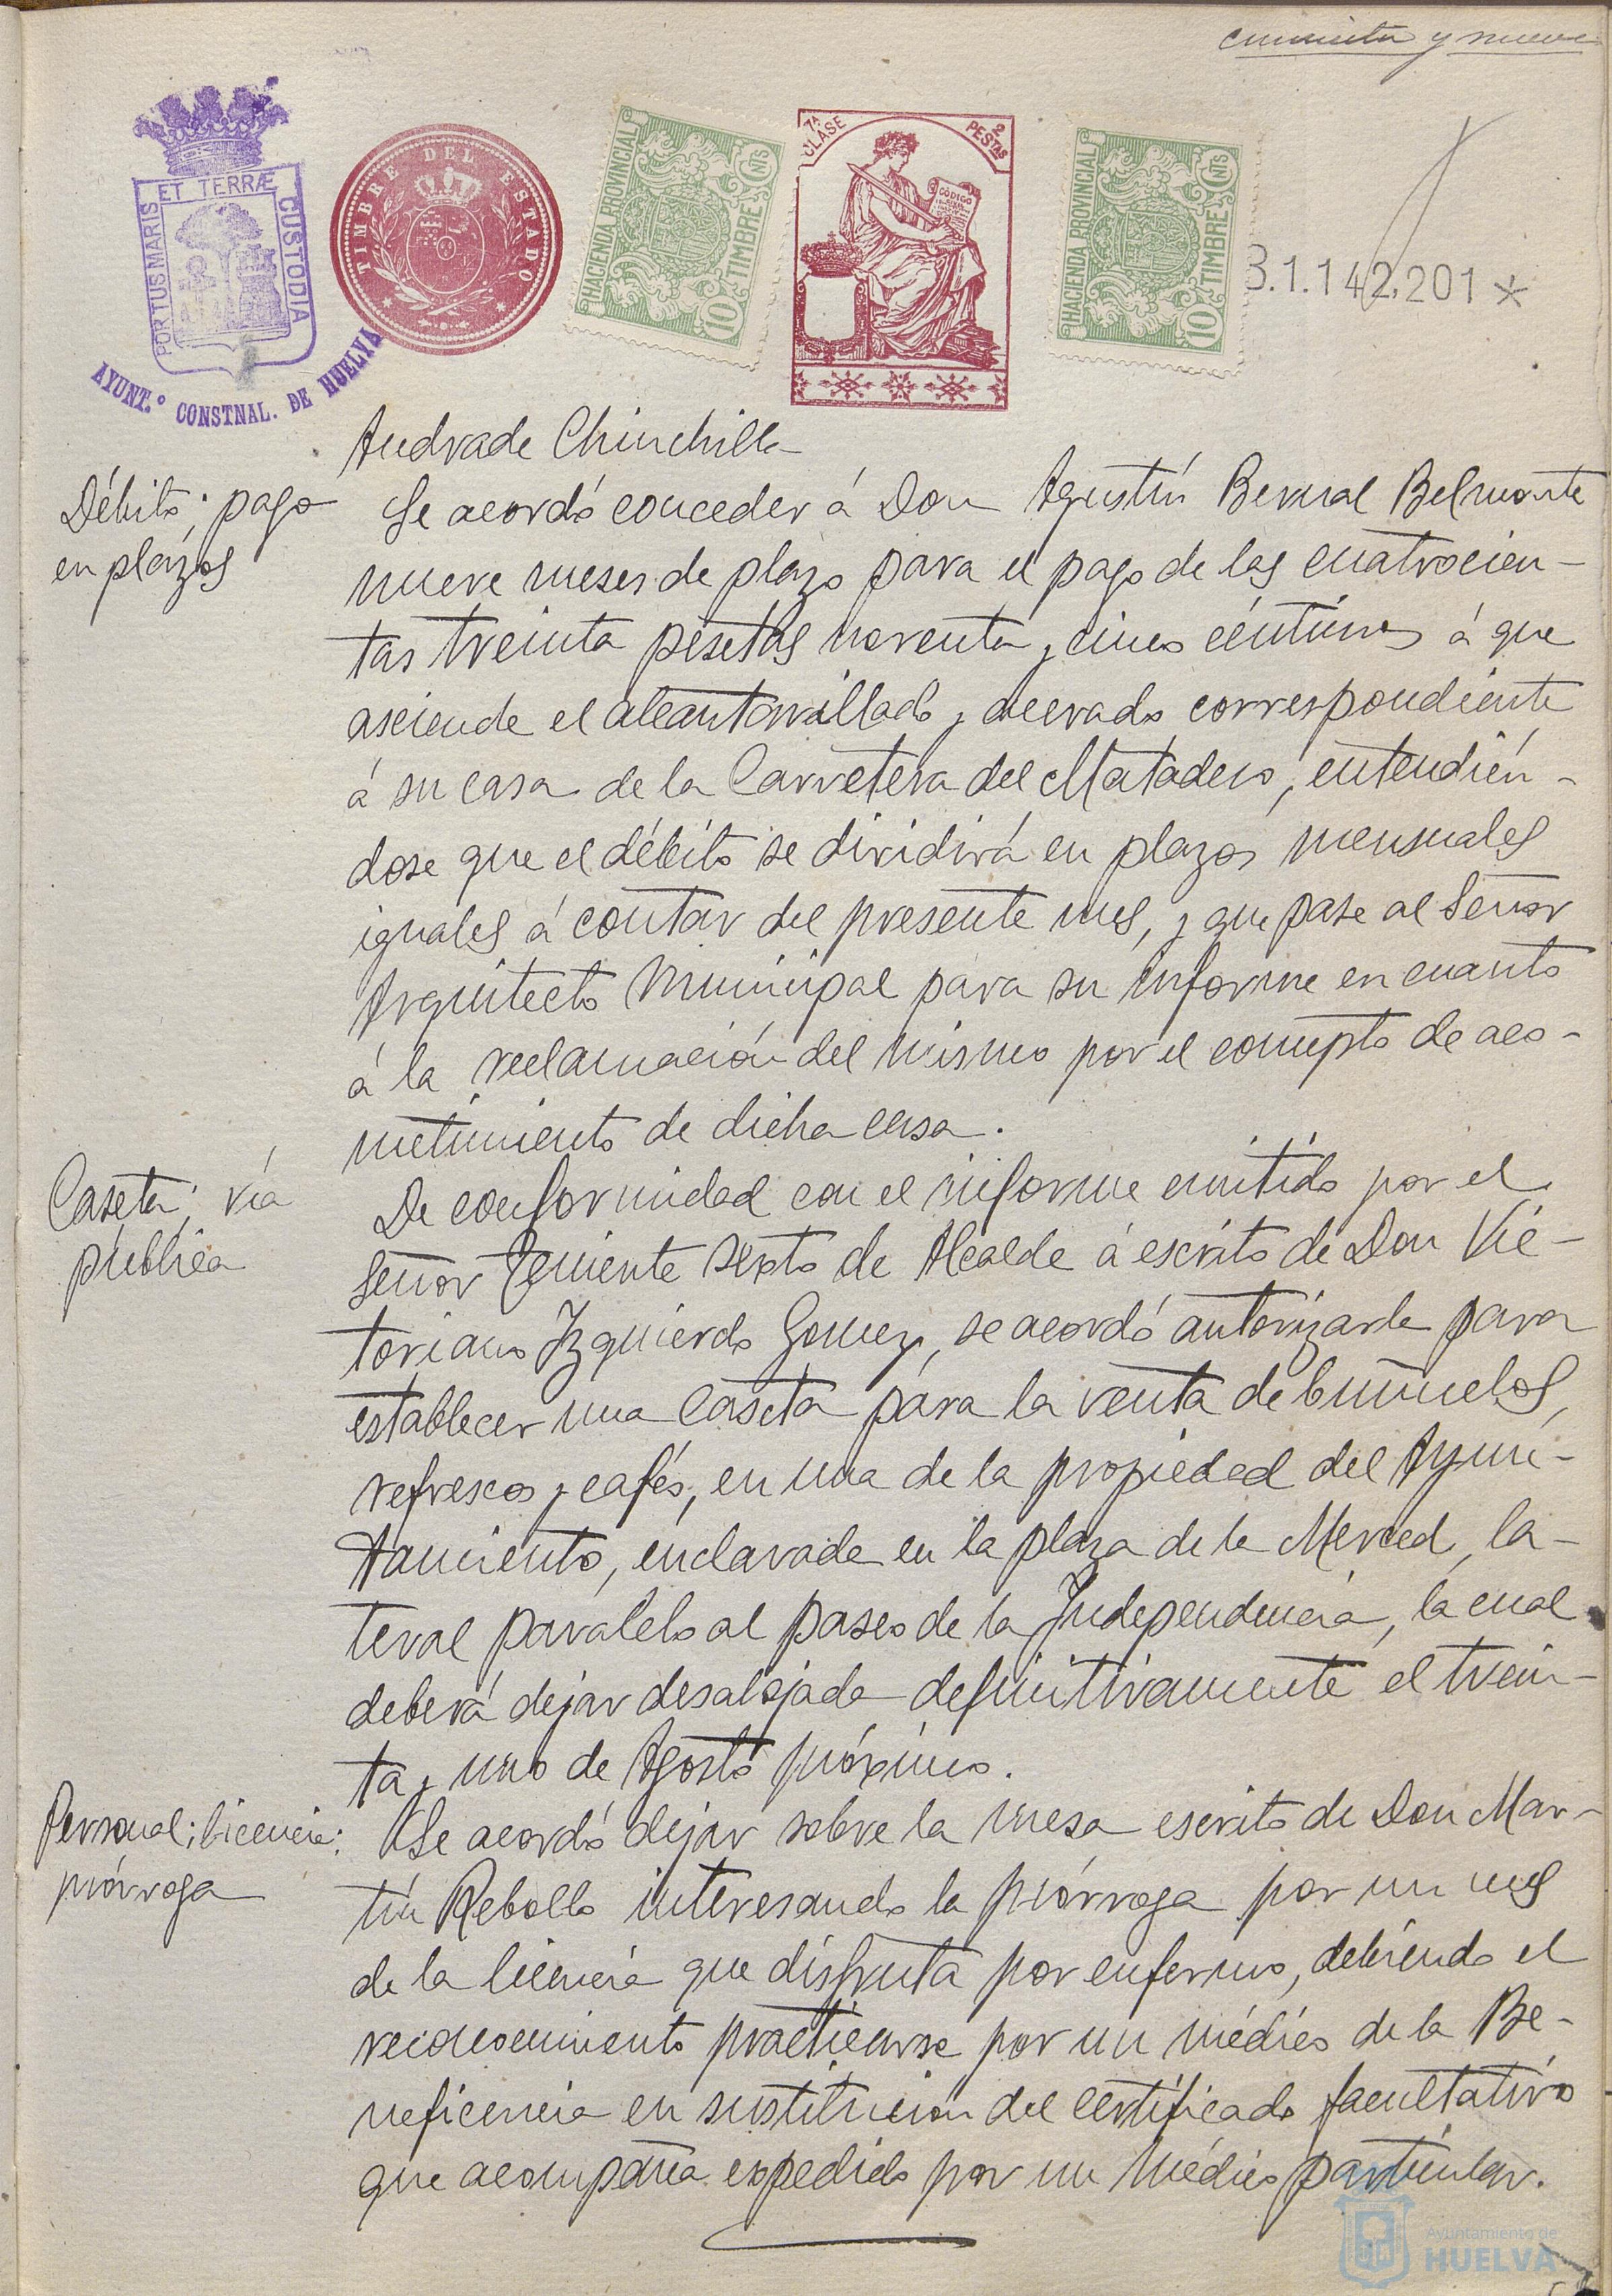 cincuenta y nueve
PORTUS MARIS ET TERRÆ CUSTODIA
AYUNT.º CONSTNAL. DE HUELVA
TIMBRE DEL ESTADO
HACIENDA PROVINCIAL
10 CNTS
TIMBRE
7ª CLASE
2 PESTAS
CÓDIGO
HACIENDA PROVINCIAL
10 CNTS
TIMBRE
B.1.142,201*
Andrade Chinchilla
Débito; pago
en plazos
Se acordó conceder á Don Agustín Bernal Belmonte
nueve meses de plazo para el pago de las cuatrocien-
tas treinta pesetas noventa y cinco céntimos á que
asciende el alcantarillado y acerado correspondiente
á su casa de la Carretera del Matadero, entendién-
dose que el débito se dividirá en plazos mensuales
iguales á contar del presente mes, y que pase al Señor
Arquitecto Municipal para su informe en cuanto
á la reclamación del mismo por el concepto de aco-
metimiento de dicha casa.
Caseta; vía
pública
De conformidad con el informe emitido por el
Señor Teniente sexto de Alcalde á escrito de Don Vic-
toriano Izquierdo Gomez, se acordó autorizarle para
establecer una caseta para la venta de buñuelos,
refrescos y cafés, en una de la propiedad del Ayun-
tamiento, enclavada en la plaza de la Merced, la-
teral paralelo al paseo de la Independencia, la cual
deberá dejar desalojada definitivamente el trein-
ta y uno de Agosto próximo.
Personal; licencia:
prórroga
Se acordó dejar sobre la mesa escrito de Don Mar-
tín Rebollo interesando la prórroga por un mes
de la licencia que disfruta por enfermo, debiendo el
reconocimiento practicarse por un médico de la Be-
neficencia en sustitución del certificado facultativo
que acompaña expedido por un médico particular.
Ayuntamiento de
HUELVA